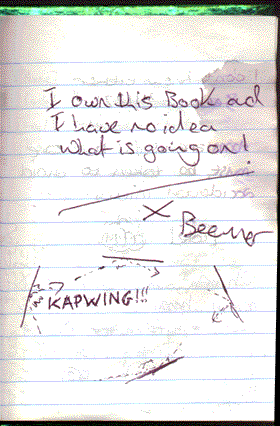 I own this Book ad
I have no idea
what is going on!
X
Beemer
KAPWING!!!